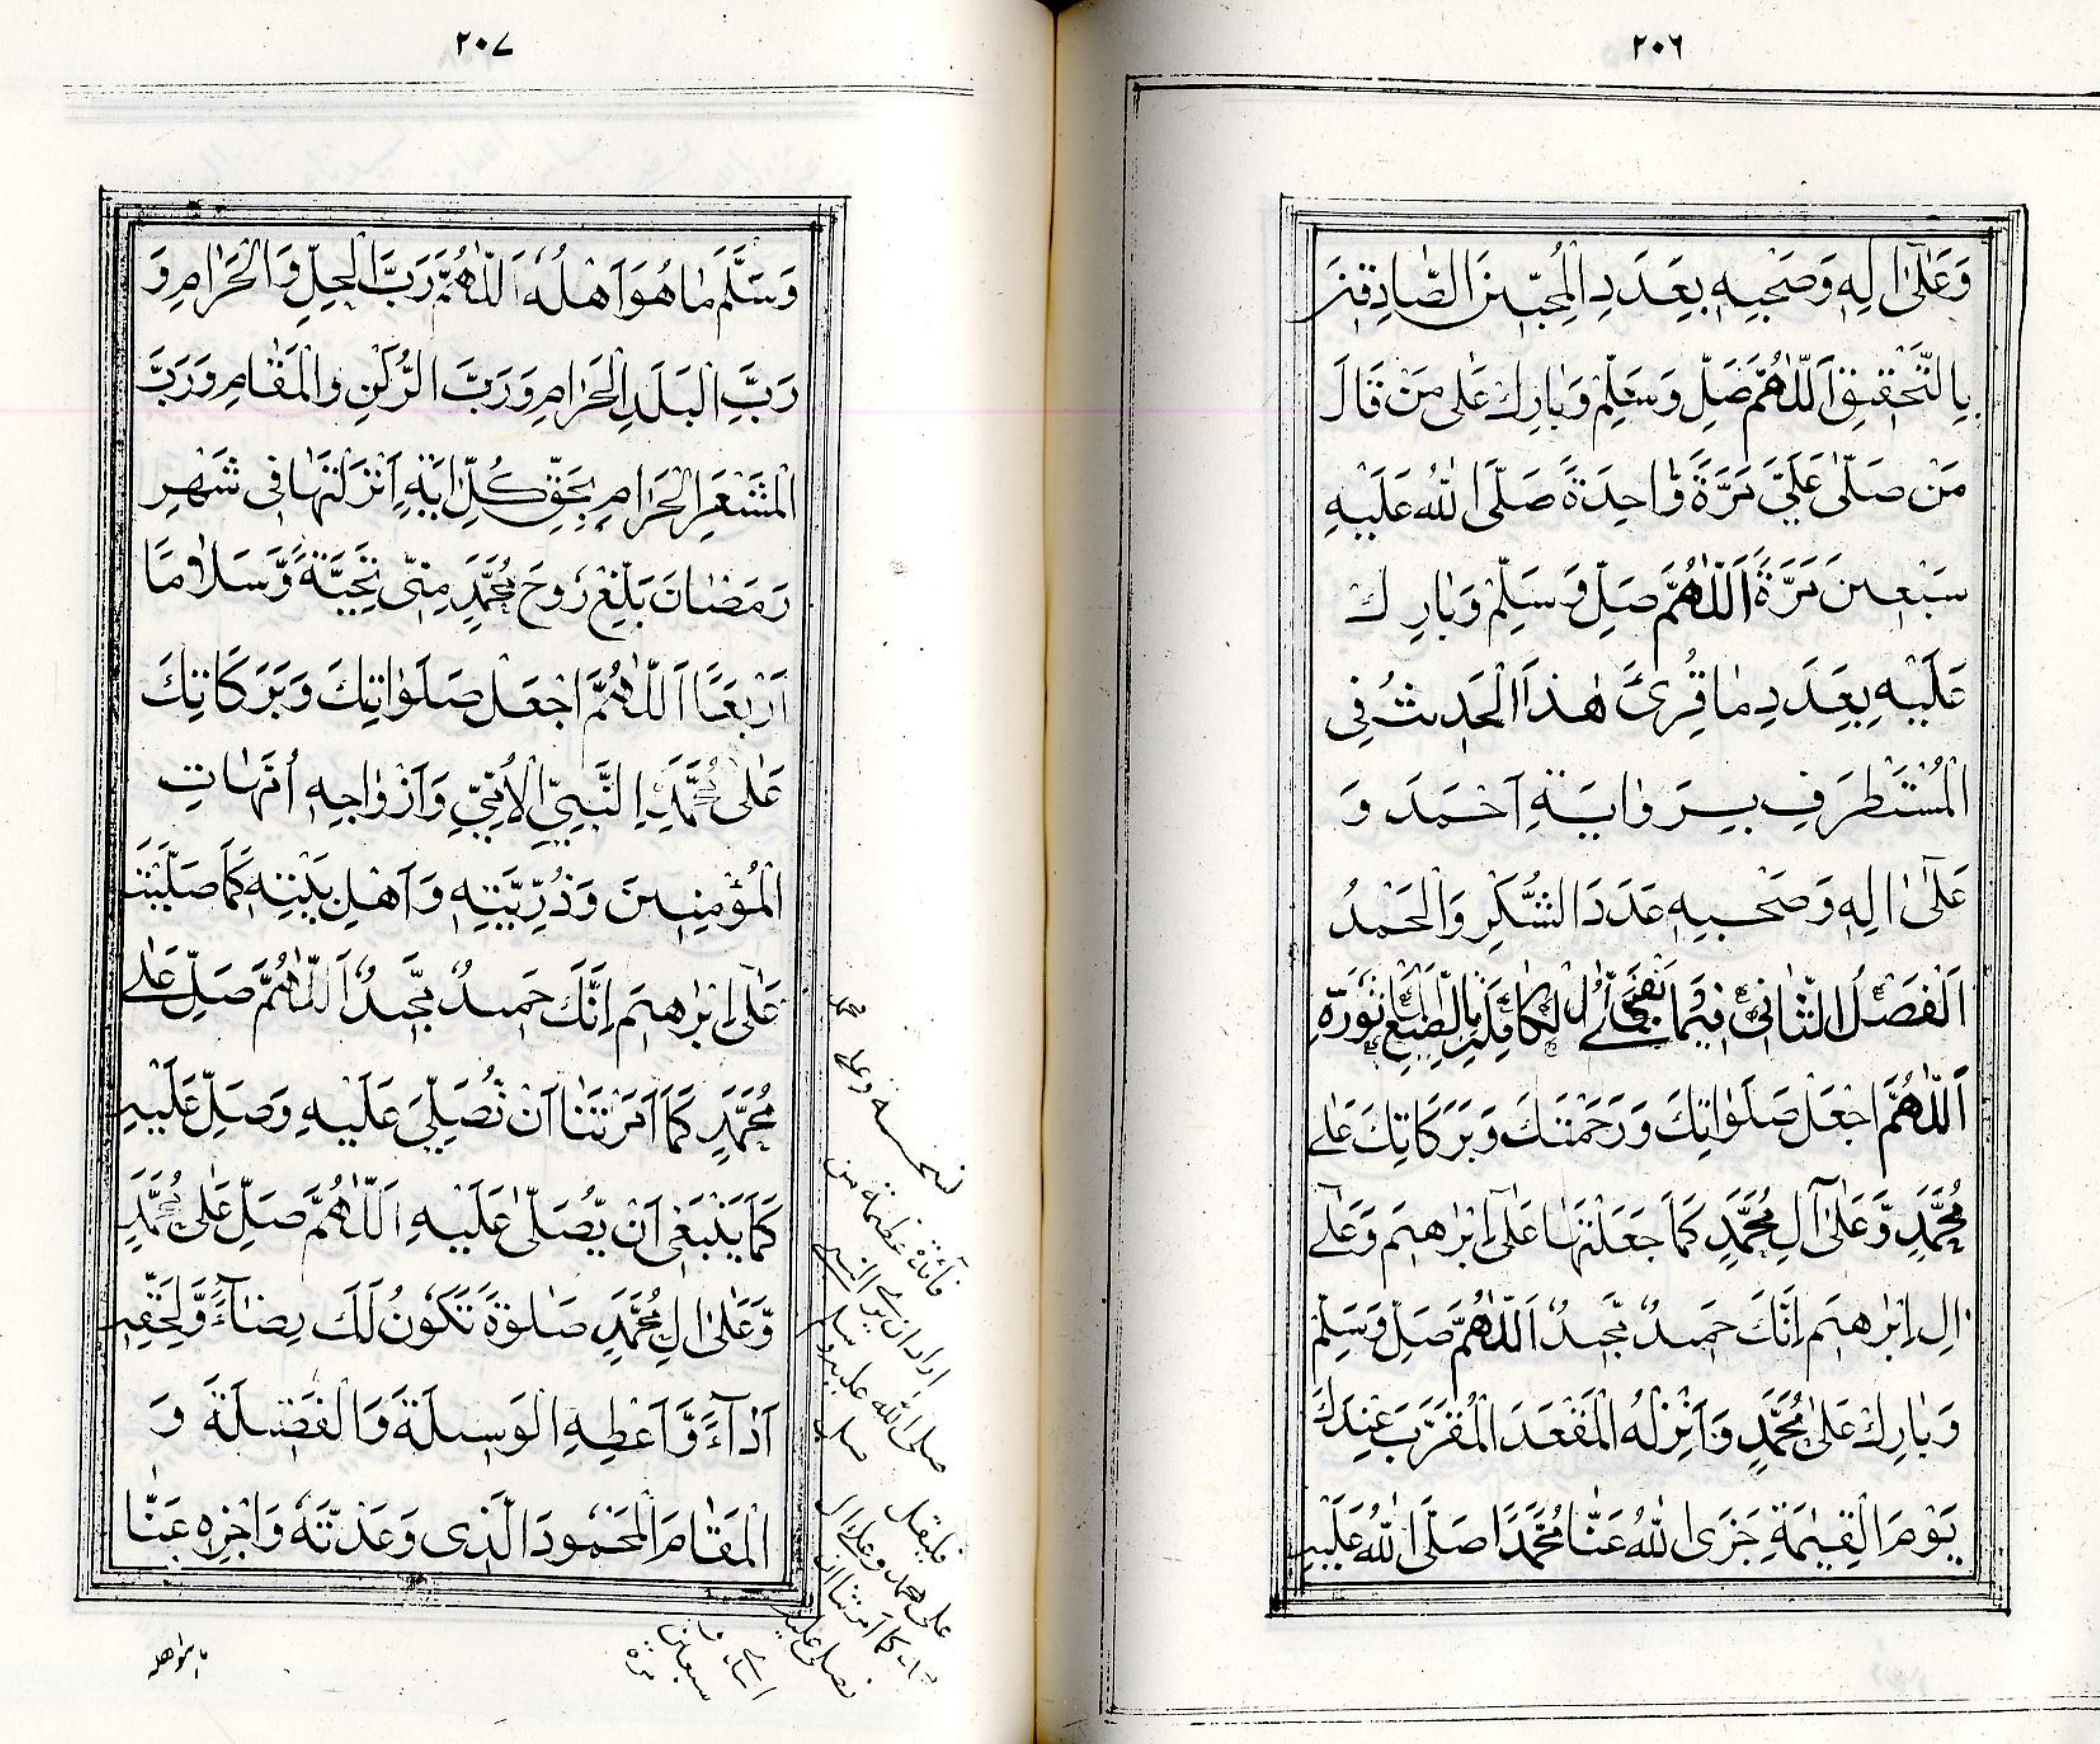 ٢٠٦
وَعَلٰى اٰلِهٖ وَصَحْبِهٖ بِعَدَدِ الْمُحِبِّيْنَ الصَّادِقِيْنَ
بِالتَّحْقِيْقِ اَللّٰهُمَّ صَلِّ وَسَلِّمْ وَبَارِكْ عَلٰى مَنْ قَالَ
مَنْ صَلّٰى عَلَيَّ مَرَّةً وَّاحِدَةً صَلَّى اللّٰهُ عَلَيْهِ
سَبْعِيْنَ مَرَّةً اَللّٰهُمَّ صَلِّ وَسَلِّمْ وَبَارِكْ
عَلَيْهِ بِعَدَدِ مَا قُرِئَ هٰذَا الْحَدِيْثُ فِي
الْمُسْتَطْرَفِ بِرِوَايَةِ اَحْمَدَ وَ
عَلٰى اٰلِهٖ وَصَحْبِهٖ عَدَدَ الشُّكْرِ وَالْحَمْدُ
اَلْفَصْلُ الثَّانِيْ فِيْمَا
اَللّٰهُمَّ اجْعَلْ صَلَوَاتِكَ وَرَحْمَتَكَ وَبَرَكَاتِكَ عَلٰى
مُحَمَّدٍ وَّعَلٰى اٰلِ مُحَمَّدٍ كَمَا جَعَلْتَهَا عَلٰى اِبْرٰهِيْمَ وَعَلٰى
اٰلِ اِبْرٰهِيْمَ اِنَّكَ حَمِيْدٌ مَّجِيْدٌ اَللّٰهُمَّ صَلِّ وَسَلِّمْ
وَبَارِكْ عَلٰى مُحَمَّدٍ وَّاَنْزِلْهُ الْمَقْعَدَ الْمُقَرَّبَ عِنْدَكَ
يَوْمَ الْقِيٰمَةِ جَزَى اللّٰهُ عَنَّا مُحَمَّدًا صَلَّى اللّٰهُ عَلَيْهِ
٢٠٧
وَسَلَّمَ مَا هُوَ اَهْلُهٗ اَللّٰهُمَّ رَبَّ الْحِلِّ وَالْحَرَامِ وَ
رَبَّ الْبَلَدِ الْحَرَامِ وَرَبَّ الرُّكْنِ وَالْمَقَامِ وَرَبَّ
الْمَشْعَرِ الْحَرَامِ بِحَقِّ كُلِّ اٰيَةٍ اَنْزَلْتَهَا فِي شَهْرِ
رَمَضَانَ بَلِّغْ رُوْحَ مُحَمَّدٍ مِنِّي تَحِيَّةً وَّسَلَامًا
اَرْبَعًا اَللّٰهُمَّ اجْعَلْ صَلَوَاتِكَ وَبَرَكَاتِكَ
عَلٰى مُحَمَّدِ النَّبِيِّ الْاُمِّيِّ وَاَزْوَاجِهٖ اُمَّهَاتِ
الْمُؤْمِنِيْنَ وَذُرِّيَّتِهٖ وَاَهْلِ بَيْتِهٖ كَمَا صَلَّيْتَ
عَلٰى اِبْرٰهِيْمَ اِنَّكَ حَمِيْدٌ مَّجِيْدٌ اَللّٰهُمَّ صَلِّ عَلٰى
مُحَمَّدٍ كَمَا اَمَرْتَنَا اَنْ نُّصَلِّيَ عَلَيْهِ وَصَلِّ عَلَيْهِ
كَمَا يَنْبَغِي اَنْ يُّصَلّٰى عَلَيْهِ اَللّٰهُمَّ صَلِّ عَلٰى مُحَمَّدٍ
وَّعَلٰى اٰلِ مُحَمَّدٍ صَلٰوةً تَكُوْنُ لَكَ رِضَاءً وَّلِحَقِّهٖ
اَدَاءً وَّاَعْطِهِ الْوَسِيْلَةَ وَالْفَضِيْلَةَ وَ
الْمَقَامَ الْمَحْمُوْدَ الَّذِي وَعَدْتَّهٗ وَاَجْزِهٖ عَنَّا
محمد
نسخة وعلى
فائدة عظيمة من
اراد ان يرى النبي
صلى الله عليه وسلم
فليقل
على محمد وعلى ال
كما امرتنا ان
نصلي عليه
سبعين
مرة
ما هو اهله